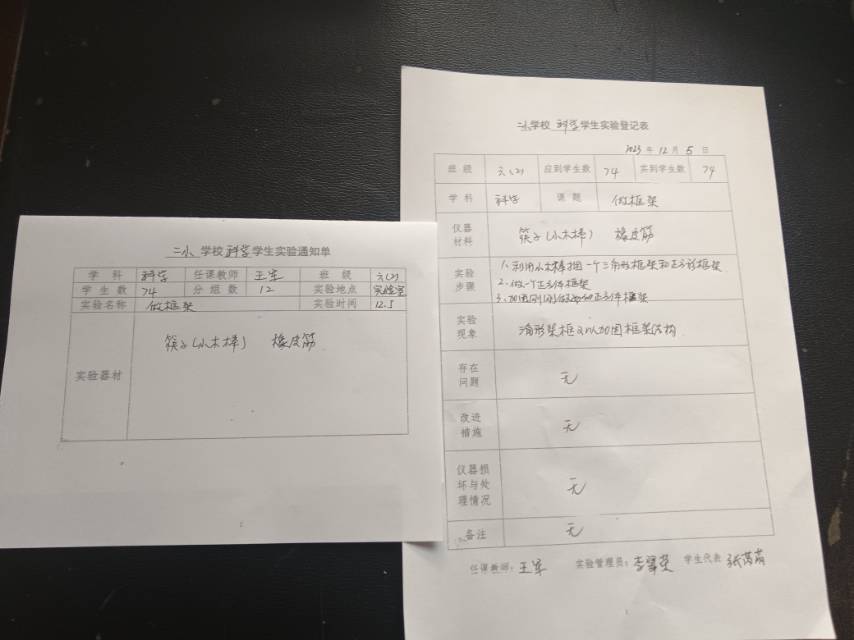 二小 学校 科学 学生实验通知单
学 科 科学 任课教师 王军 班 级 六(2)
学 生 数 74 分 组 数 12 实验地点 实验室
实验名称 做框架 实验时间 12.5
实验器材 筷子(小木棒) 橡皮筋
二小 学校 科学 学生实验登记表
2023 年 12 月 5 日
班 级 六(2) 应到学生数 74 实到学生数 74
学 科 科学 课 题 做框架
仪器材料 筷子(小木棒) 橡皮筋
实验步骤 1、利用小木棒捆一个三角形框架和正方形框架
2、做一个正方体框架
3、加固刚刚做的正方体框架
实验现象 三角形架框可以加固框架结构
存在问题 无
改进措施 无
仪器损坏与处理情况 无
备注 无
任课教师: 王军 实验管理员: 李 学生代表 张